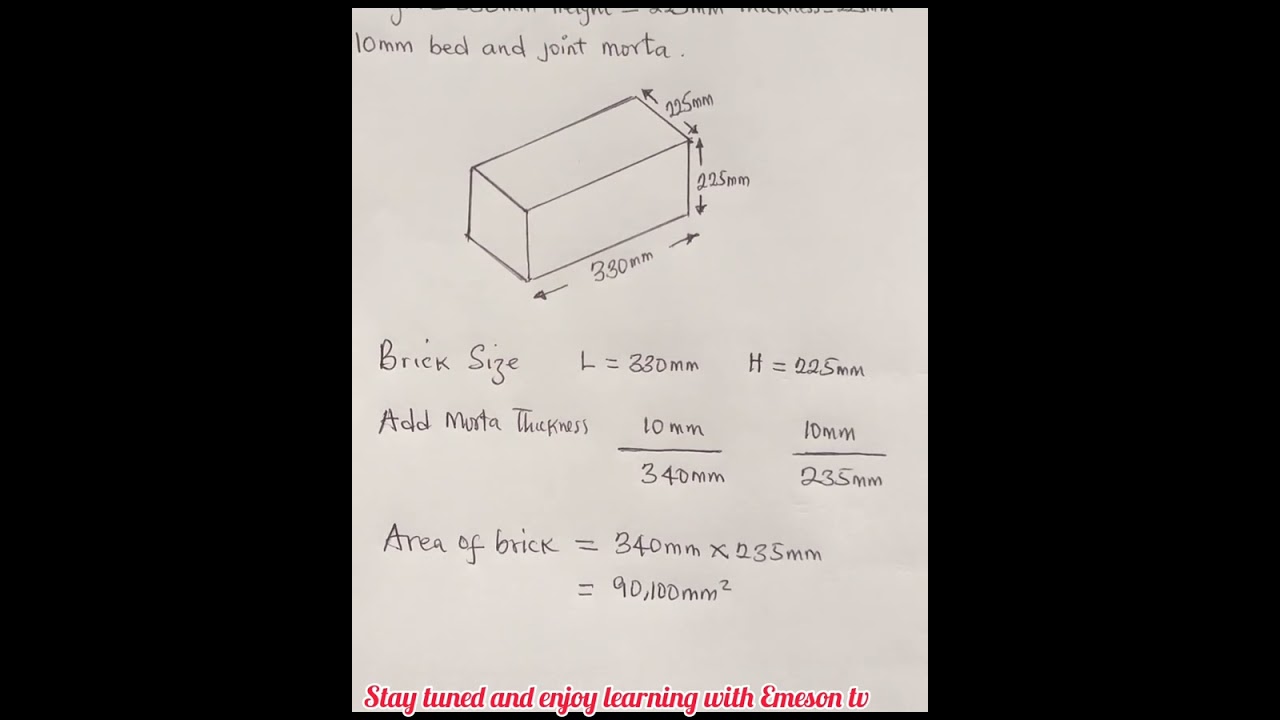 10mm bed and joint morta.
225mm
225mm
330mm
Brick Size L = 330mm H = 225mm
Add Morta Thickness 10mm 10mm
340mm 235mm
Area of brick = 340mm x 235mm
= 90,100mm²
Stay tuned and enjoy learning with Emeson tv